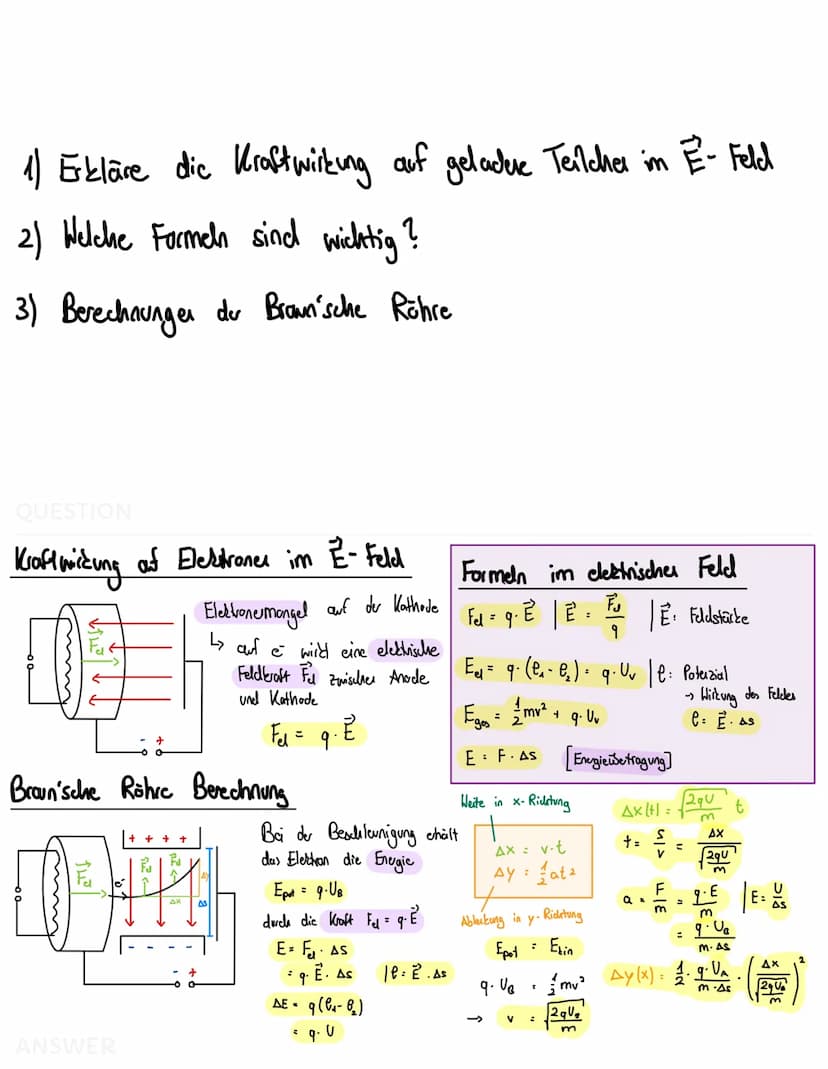 1) Erkläre die Kraftwirkung auf geladene Teilchen im E⃗- Feld
2) Welche Formeln sind wichtig?
3) Berechnungen der Braun'sche Röhre
QUESTION
Kraftwirkung auf Elektronen im E⃗- Feld
Elektronenmangel auf der Kathode
↳ auf e⁻ wird eine elektrische
Feldkraft F⃗el zwischen Anode
und Kathode
Fel = q · E⃗
F⃗el
- +
Formeln im elektrischen Feld
Fel = q · E⃗ | E⃗ = F⃗el/q | E⃗: Feldstärke
Eel = q · (φ₁ - φ₂) = q · Uᵥ | φ: Potenzial
→ Wirkung des Feldes
Eges = ½mv² + q · Uᵥ φ = E⃗ · Δs
E = F · Δs [Energieübertragung]
Braun'sche Röhre Berechnung
+ + + +
F⃗el F⃗el
F⃗el e⁻ Δy
Δx Δs
- - - -
- +
Bei der Beschleunigung erhält
das Elektron die Energie
Epot = q · U_B
durch die Kraft Fel = q · E⃗
E = Fel · Δs
= q · E⃗ · Δs | φ = E⃗ · Δs
ΔE = q(φ₁ - φ₂)
= q · U
Weite in x-Richtung
Δx = v · t
Δy = ½at²
Ablenkung in y-Richtung
Epot = Ekin
q · U_B = ½mv²
→ v = √(2qU_B/m)
Δx(t) = √(2qU/m) t
t = s/v = Δx/√(2qU/m)
a = F/m = q · E/m | E = U/Δs
= q · U_A/(m · Δs)
Δy(x) = ½ · q · U_A/(m · Δs) · (Δx/√(2qU_B/m))²
ANSWER